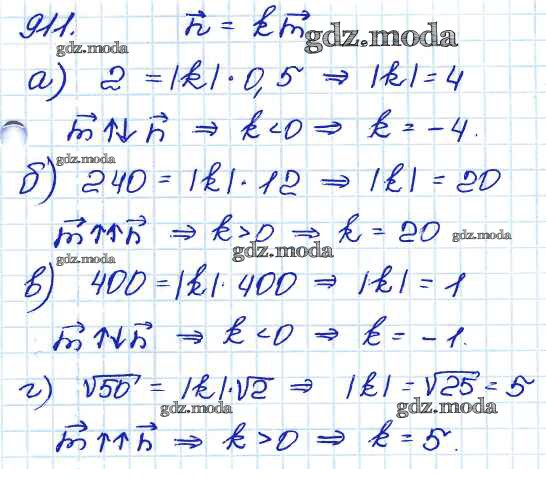 911. n⃗ = k m⃗ gdz.moda
gdz.moda
а) 2 = |k| · 0,5 ⇒ |k| = 4
m⃗ ↑↓ n⃗ ⇒ k < 0 ⇒ k = -4.
gdz.moda
б) 240 = |k| · 12 ⇒ |k| = 20
m⃗ ↑↑ n⃗ ⇒ k > 0 ⇒ k = 20 gdz.moda
gdz.moda
gdz.moda
в) 400 = |k| · 400 ⇒ |k| = 1
m⃗ ↑↓ n⃗ ⇒ k < 0 ⇒ k = -1.
г) √50 = |k| · √2 ⇒ |k| = √25 = 5
gdz.moda gdz.moda
m⃗ ↑↑ n⃗ ⇒ k > 0 ⇒ k = 5.